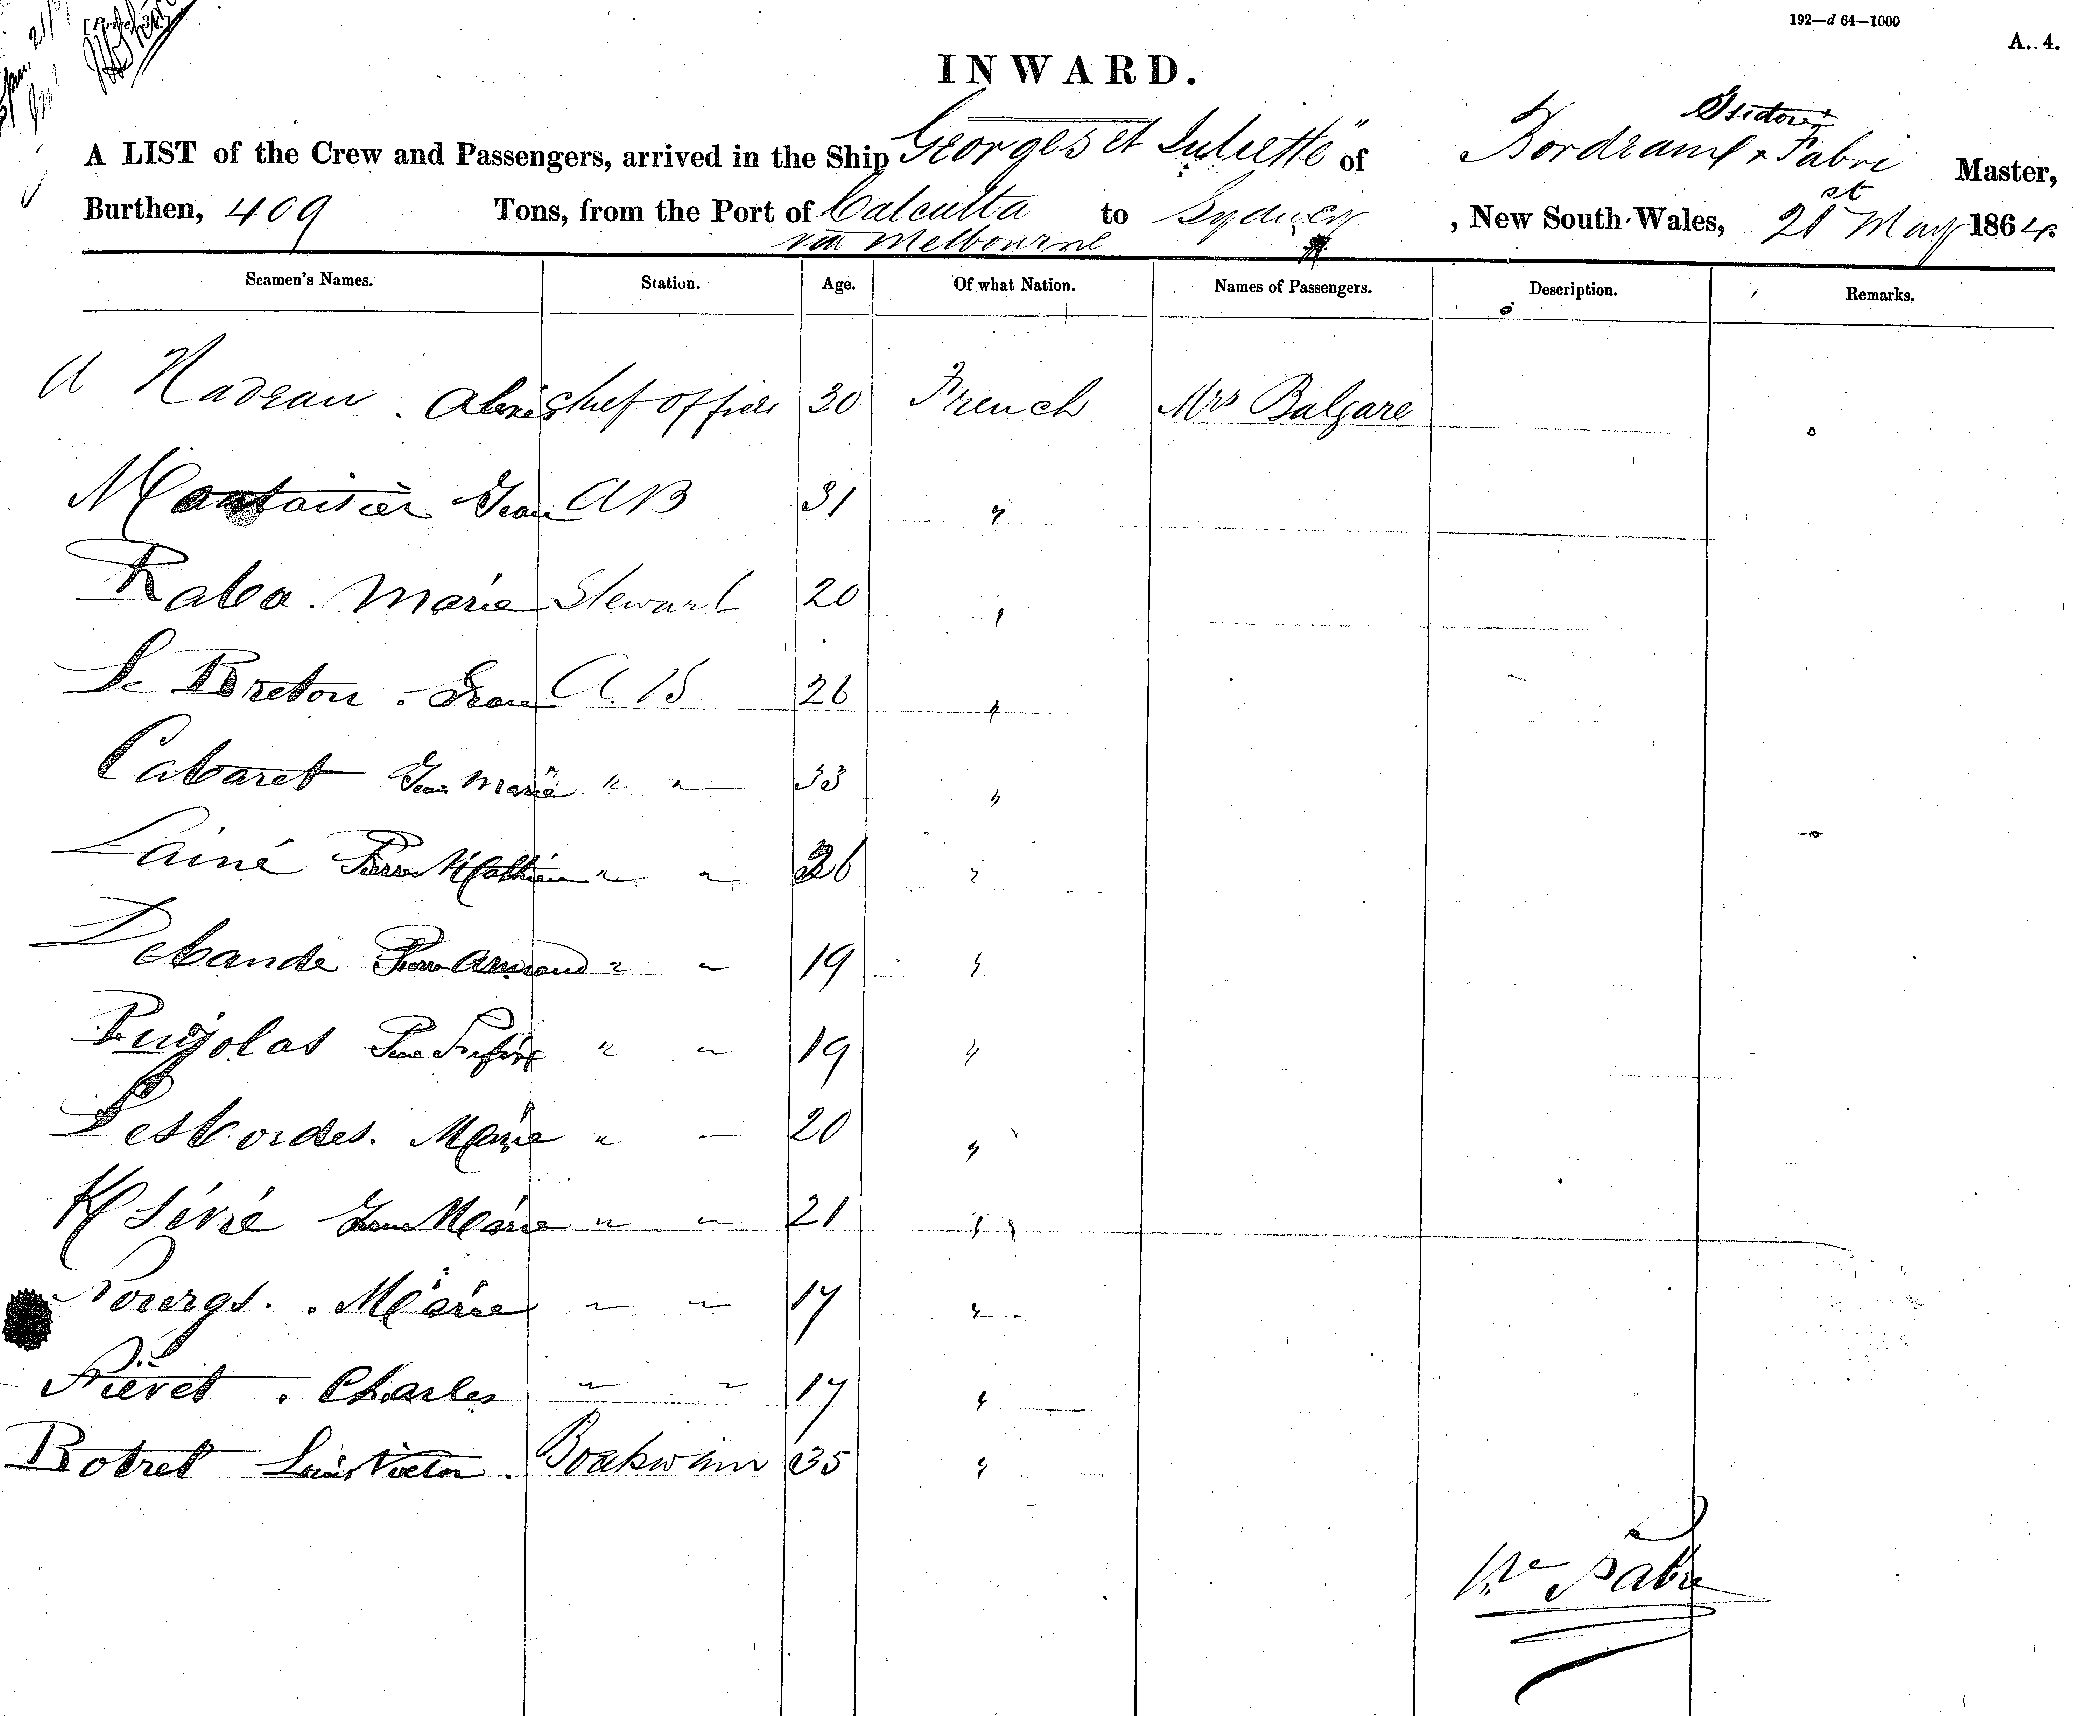 192—d 64—1000
A. 4.
INWARD.
Isidore
A LIST of the Crew and Passengers, arrived in the Ship Georges et Juliette" of Fabre Master,
Burthen, 409 Tons, from the Port of Calcutta to Sydney, New South Wales, 21st May 1864.
via Melbourne
Seamen's Names. Station. Age. Of what Nation. Names of Passengers. Description. Remarks.
A Nadeau. Chief Officer 30 French Mrs Balgare
Jean AB 31 "
Raba. Marie Steward 20 "
Le Breton. Jean A.B 26 "
Cabaret Jean Marie " " 33 "
Lainé Pierre Mathieu " " 26 "
Debande Pierre Armand " " 19 "
Pujolas " " 19 "
Desbordes. Marie " " 20 "
Jean Marie " " 21 "
Marie " " 17 "
Fievet. Charles " " 17 "
Botrel Louis Victor. Boatswain 35 "
Fabre